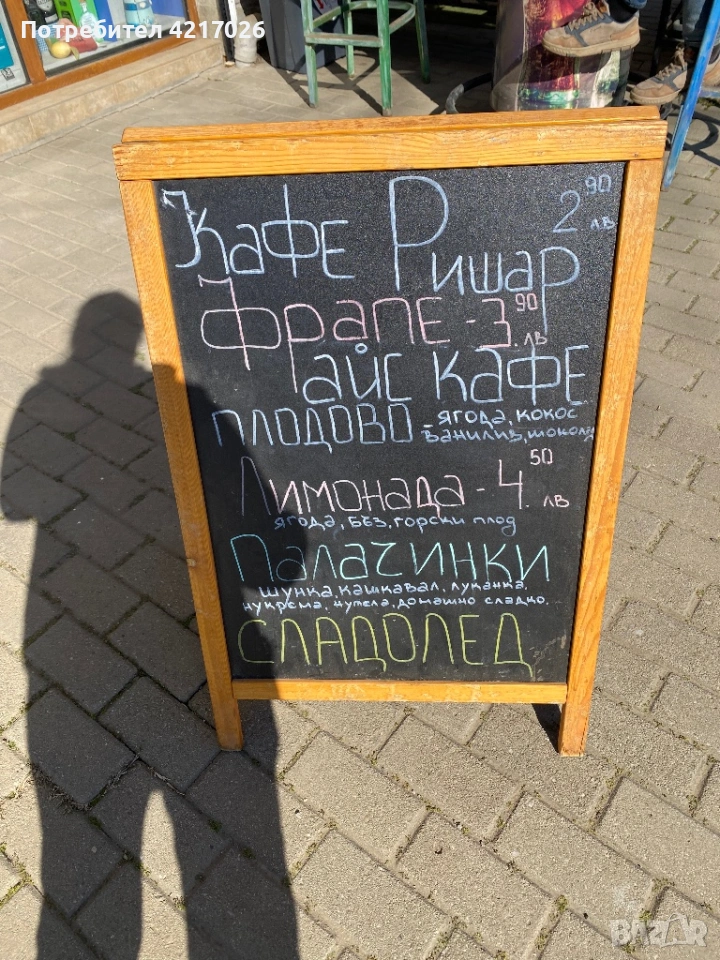 Потребител 4217026
Кафе Ришар 2.90 лв
Фрапе - 3.90 лв
Айс кафе
ПЛОДОВО - ягода, кокос
ванилия, шоколад
Лимонада - 4.50 лв
ягода, бъз, горски плод
Палачинки
шунка, кашкавал, луканка,
чукрема, нутела, домашно сладко.
СЛАДОЛЕД
BAZAR